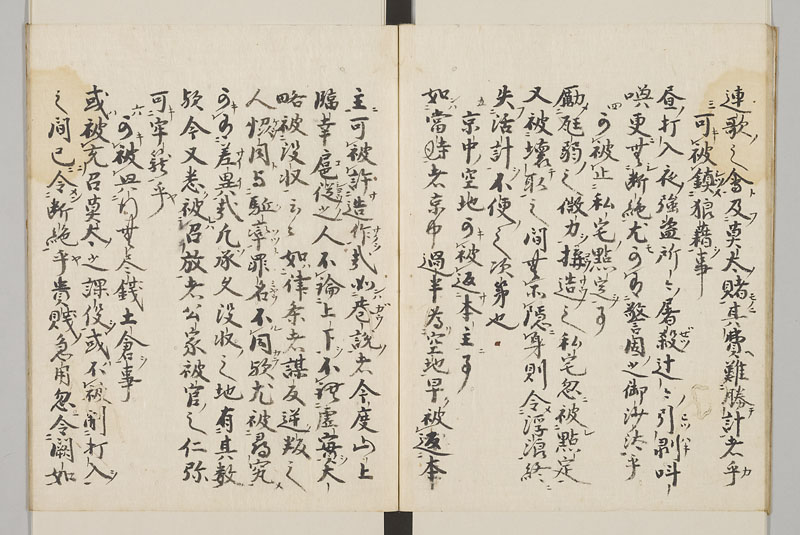 連歌之會及莫太賭其費難勝計者乎
三 可被鎮狼藉事
昼打入夜強盗所々屠殺辻々引剥叫
喚更無断絶尤可有警固之御沙汰乎
四 可被止私宅點定事
勵尫弱之微力構造之私宅忽被點定
又被壊取之間無所隠身則令浮浪終
失活計不便之次第也
五 京中空地可被返本主事
如當時者京中過半為空地早被返本
主可被許造作哉如巷説者今度山上
臨幸扈従之人不論上下不謂虚実大
略被没収云々如律条者謀反逆叛之
人協同与駈率罪名不同歟尤被尋究
可有差異哉凡承久没収之地有其数
歟今又悉被召放者公家被官之仁弥
可牢籠乎
六 可被興行無尽錢土倉事
或被充召莫太之課役或不被制打入
之間已令断絶乎貴賤急用忽令闕如